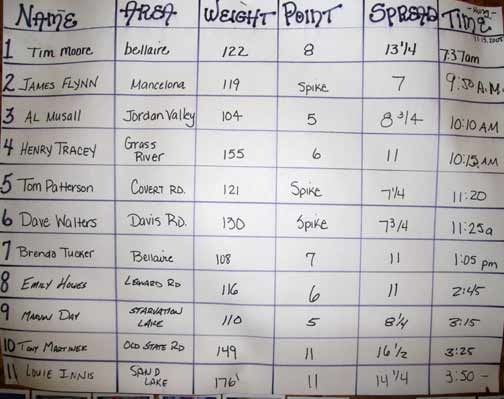 NAME AREA WEIGHT POINT SPREAD TIME
11.15.2005
1 Tim Moore bellaire 122 8 13 1/4 7:37am
2 JAMES FLYNN Mancelona 119 Spike 7 9:50 A.M.
3 AL Musall Jordan Valley 104 5 8 3/4 10:10 AM
4 HENRY TRACEY Grass River 155 6 11 10:15 AM
5 Tom Patterson COVERT RD. 121 Spike 7 1/4 11:20
6 Dave Walters Davis RD. 130 Spike 7 3/4 11:25a
7 Brenda Tucker Bellaire 108 7 11 1:05 pm
8 EMILY HOWES LEWARD RD 116 6 11 2:45
9 MARVIN DAY STARVATION LAKE 110 5 8 1/4 3:15
10 TONY MARTINEK OLD STATE RD 149 11 16 1/2 3:25
11 LOUIE INNIS SAND LAKE 176 11 14 1/4 3:50 -